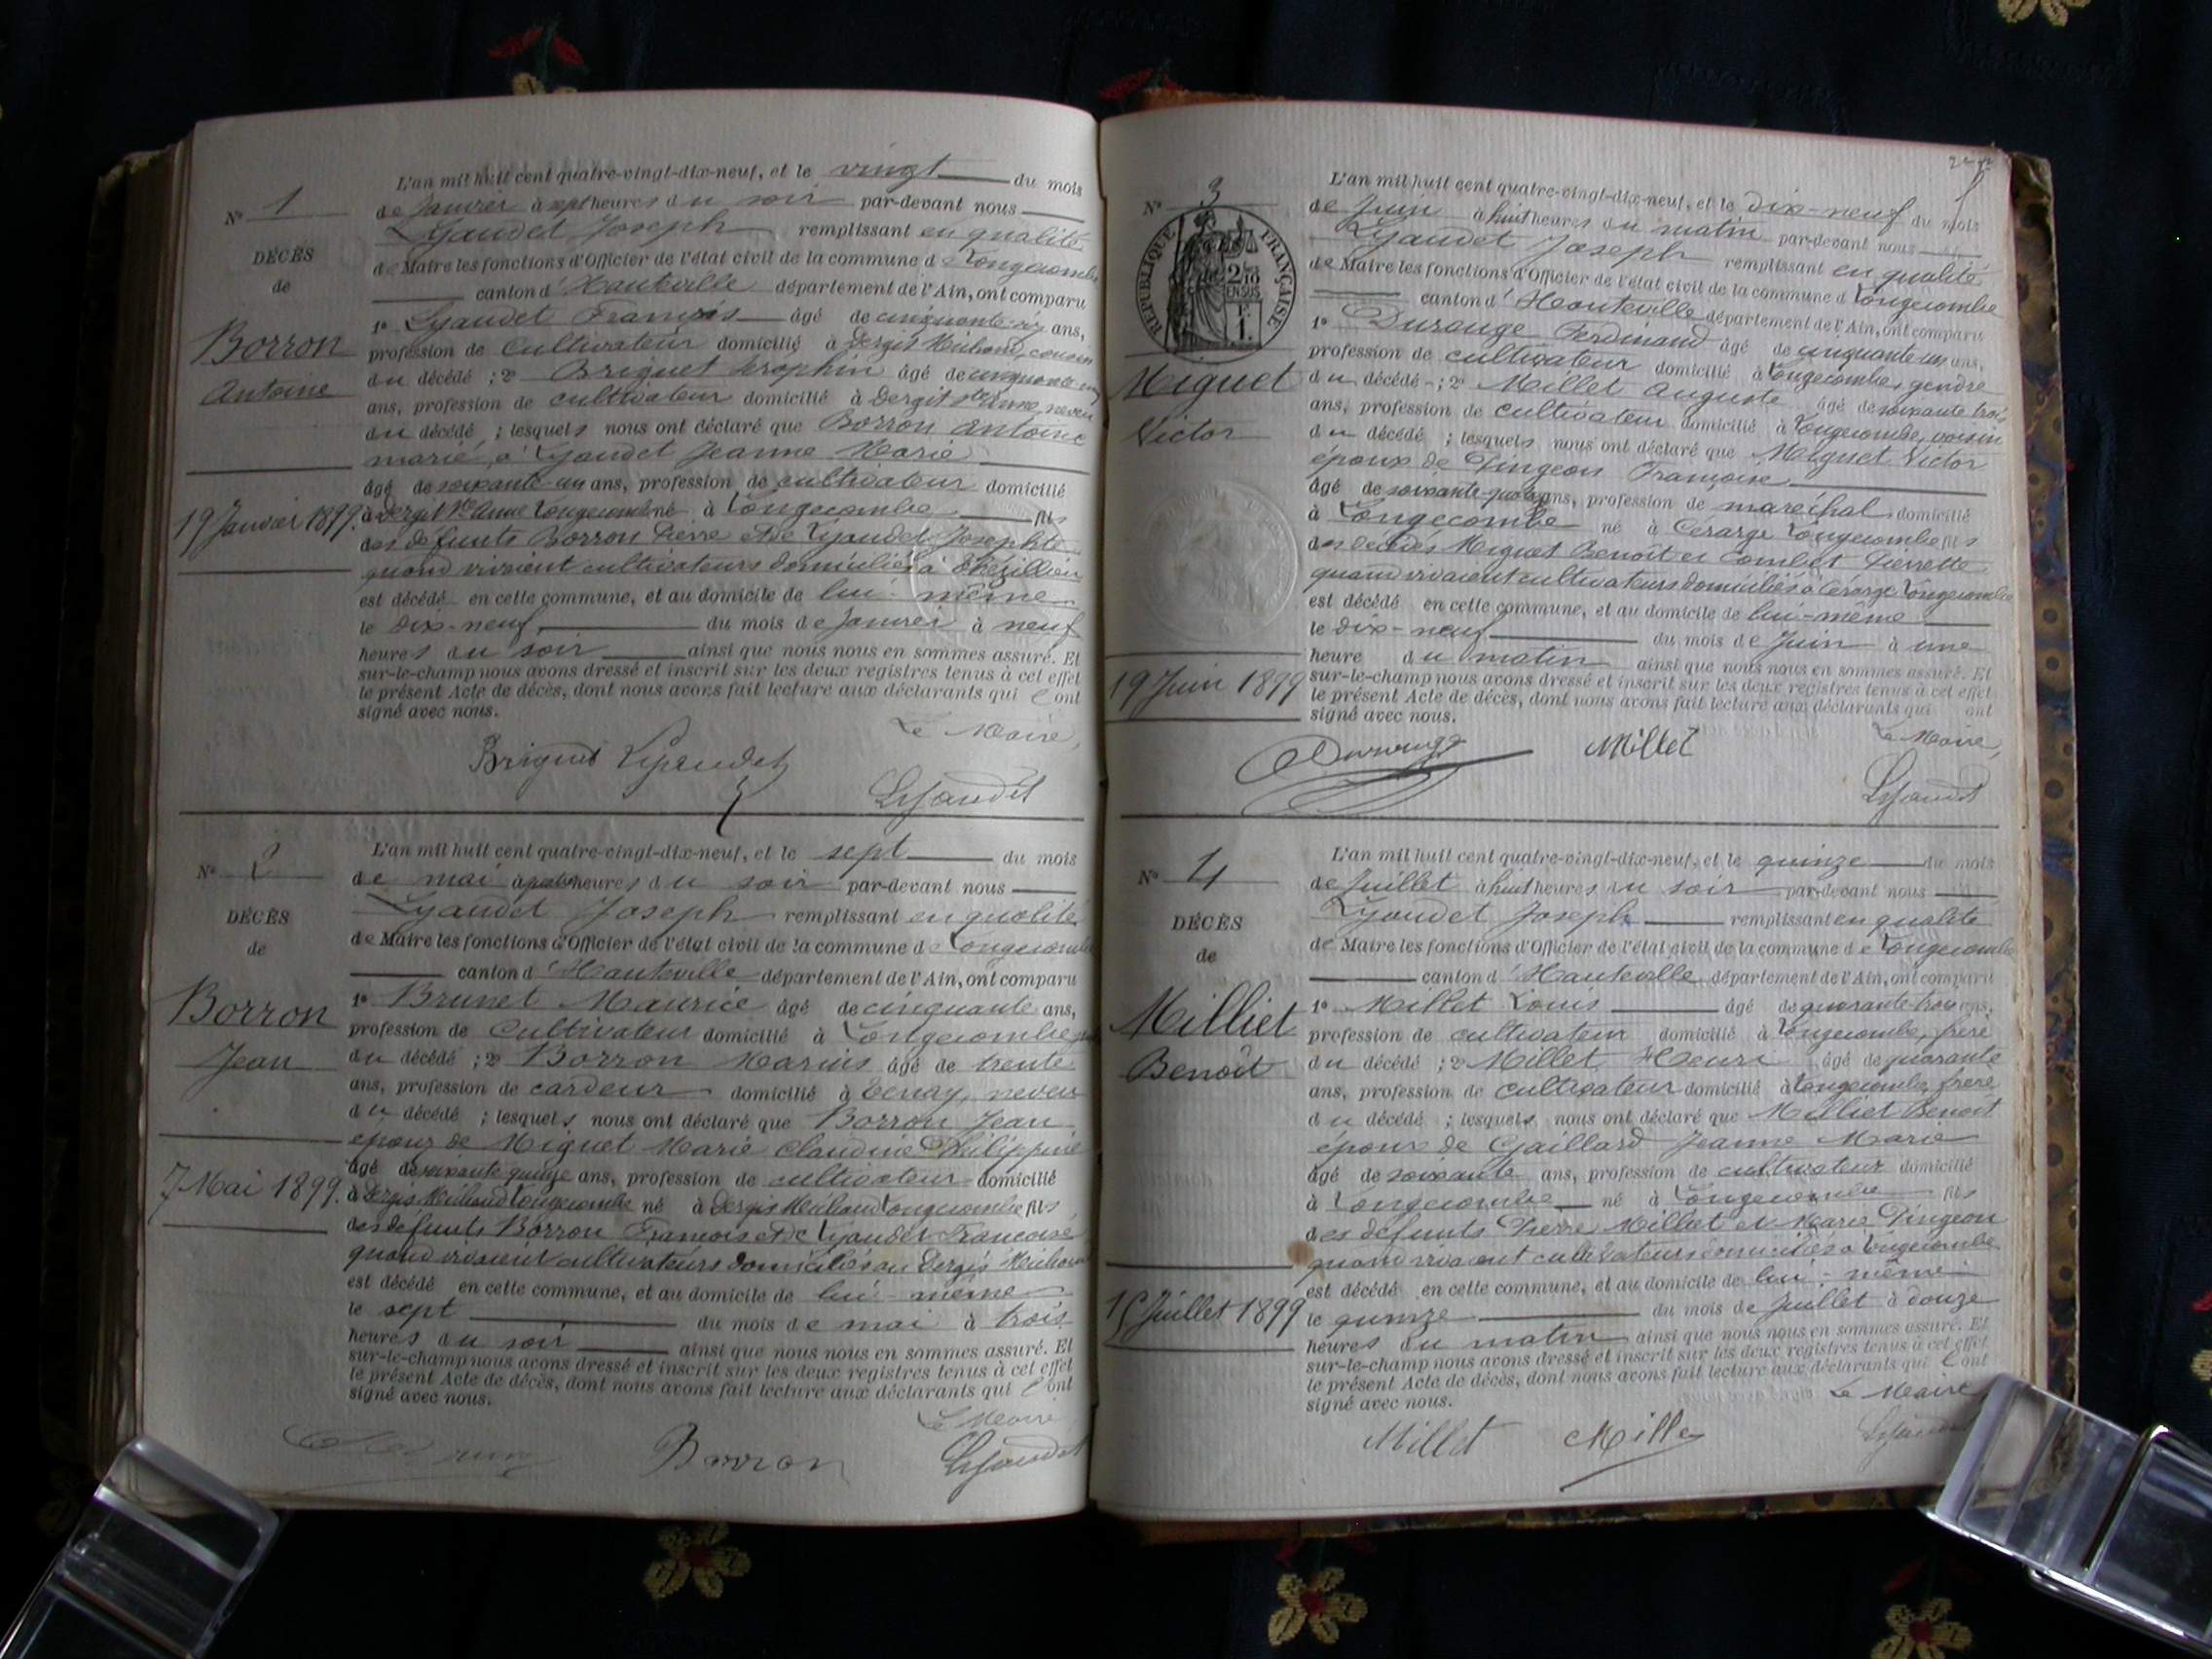 L'an mil huit cent quatre-vingt-dix-neuf, et le vingt du mois
N° 1
de Janvier à sept heures du soir par-devant nous
Lyaudet Joseph remplissant en qualité
DÉCÈS
de Maire les fonctions d'Officier de l'état civil de la commune de Longecombe
de
canton d'Hauteville département de l'Ain, ont comparu
1° Lyaudet François âgé de cinquante-six ans,
Borron
profession de cultivateur domicilié à Dergis Meiliand, cousin
du décédé ; 2° Briguet Séraphin âgé de cinquante
Antoine
ans, profession de cultivateur domicilié à Dergit Ste Anne, neveu
du décédé ; lesquels nous ont déclaré que Borron Antoine
marié à Lyaudet Jeanne Marie
âgé de soixante-un ans, profession de cultivateur domicilié
19 Janvier 1899.
à Dergit Ste Anne Longecombe né à Longecombe fils
des défunts Borron Pierre et de Lyaudet Josephte
quand vivaient cultivateurs domiciliés à
est décédé en cette commune, et au domicile de lui-même
le dix-neuf du mois de Janvier à neuf
heures du soir ainsi que nous nous en sommes assuré. Et
sur-le-champ nous avons dressé et inscrit sur les deux registres tenus à cet effet
le présent Acte de décès, dont nous avons fait lecture aux déclarants qui l'ont
signé avec nous.
Le Maire,
Briguet Lyaudet
Lyaudet
L'an mil huit cent quatre-vingt-dix-neuf, et le sept du mois
N° 2
de mai à heures du soir par-devant nous
Lyaudet Joseph remplissant en qualité
DÉCÈS
de Maire les fonctions d'Officier de l'état civil de la commune de Longecombe
de
canton d'Hauteville département de l'Ain, ont comparu
1° Brunet Maurice âgé de cinquante ans,
Borron
profession de cultivateur domicilié à Longecombe
du décédé ; 2° Borron Marius âgé de trente
Jean
ans, profession de cardeur domicilié à Tenay, neveu
du décédé ; lesquels nous ont déclaré que Borron Jean
époux de Miguet Marie Claudine Philippine
âgé de soixante quinze ans, profession de cultivateur domicilié
7 Mai 1899.
à Dergis Meiliand Longecombe né à Dergis Meiliand Longecombe fils
des défunts Borron François et de Lyaudet Françoise
quand vivaient cultivateurs domiciliés au Dergis Meiliand
est décédé en cette commune, et au domicile de lui-même
le sept du mois de mai à trois
heures du soir ainsi que nous nous en sommes assuré. Et
sur-le-champ nous avons dressé et inscrit sur les deux registres tenus à cet effet
le présent Acte de décès, dont nous avons fait lecture aux déclarants qui l'ont
signé avec nous.
Le Maire
Borron
Lyaudet
L'an mil huit cent quatre-vingt-dix-neuf, et le dix-neuf du mois
N° 3
de Juin à huit heures du matin par-devant nous
Lyaudet Joseph remplissant en qualité
RÉPUBLIQUE FRANÇAISE
2/10 EN SUS
F. 1.
de Maire les fonctions d'Officier de l'état civil de la commune d Longecombe
canton d'Hauteville département de l'Ain, ont comparu
1° Durouge Ferdinand âgé de cinquante un ans,
Miguet
profession de cultivateur domicilié à Longecombe, gendre
du décédé ; 2° Millet Auguste âgé de soixante trois
Victor
ans, profession de cultivateur domicilié à Longecombe, voisin
du décédé ; lesquels nous ont déclaré que Miguet Victor
époux de Pingeon Françoise
âgé de ans, profession de maréchal domicilié
à Longecombe né à Cérarge Longecombe fils
des décédés Miguet Benoit et Combet Pierrette
quand vivaient cultivateurs domiciliés à Cérarge Longecombe
est décédé en cette commune, et au domicile de lui-même
le dix-neuf du mois de Juin à une
19 Juin 1899
heure du matin ainsi que nous nous en sommes assuré. Et
sur-le-champ nous avons dressé et inscrit sur les deux registres tenus à cet effet
le présent Acte de décès, dont nous avons fait lecture aux déclarants qui ont
signé avec nous.
Le Maire,
Durouge Millet
Lyaudet
L'an mil huit cent quatre-vingt-dix-neuf, et le quinze du mois
N° 4
de Juillet à huit heures du soir par-devant nous
Lyaudet Joseph remplissant en qualité
DÉCÈS
de Maire les fonctions d'Officier de l'état civil de la commune de Longecombe
de
canton d'Hauteville département de l'Ain, ont comparu
1° Millet Louis âgé de quarante-trois ans,
Milliet
profession de cultivateur domicilié à Longecombe, frère
du décédé ; 2° Millet Henri âgé de quarante
Benoît
ans, profession de cultivateur domicilié à Longecombe, frère
du décédé ; lesquels nous ont déclaré que Milliet Benoit
époux de Gaillard Jeanne Marie
âgé de soixante ans, profession de cultivateur domicilié
à Longecombe né à Longecombe fils
des défunts Pierre Milliet et Marie Pingeon
quand vivaient cultivateurs domiciliés à Longecombe
est décédé en cette commune, et au domicile de lui-même
15 Juillet 1899
le quinze du mois de Juillet à douze
heures du matin ainsi que nous nous en sommes assuré. Et
sur-le-champ nous avons dressé et inscrit sur les deux registres tenus à cet effet
le présent Acte de décès, dont nous avons fait lecture aux déclarants qui l'ont
signé avec nous.
Le Maire
Millet Mille
Lyaudet